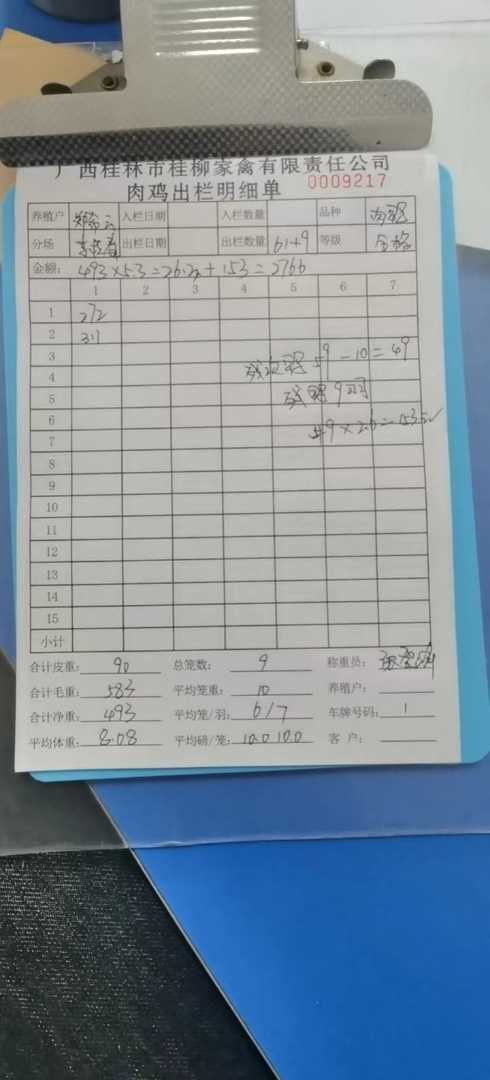 广西桂林市桂柳家禽有限责任公司
肉鸡出栏明细单 0009217
养殖户 入栏日期 入栏数量 品种
分场 出栏日期 出栏数量 61+9 等级 合格
金额: 493×5.3=26.2 + 153=2766
1 2 3 4 5 6 7
1 272
2 311
3 9-10=49
4
5
6
7 9×2.6=153
8
9
10
11
12
13
14
15
小计
合计皮重: 90 总笼数: 9 称重员:
合计毛重: 583 平均笼重: 10 养殖户:
合计净重: 493 平均笼/羽: 6/7 车牌号码: 1
平均体重: 8.08 平均磅/笼: 10.0 10.0 客 户: